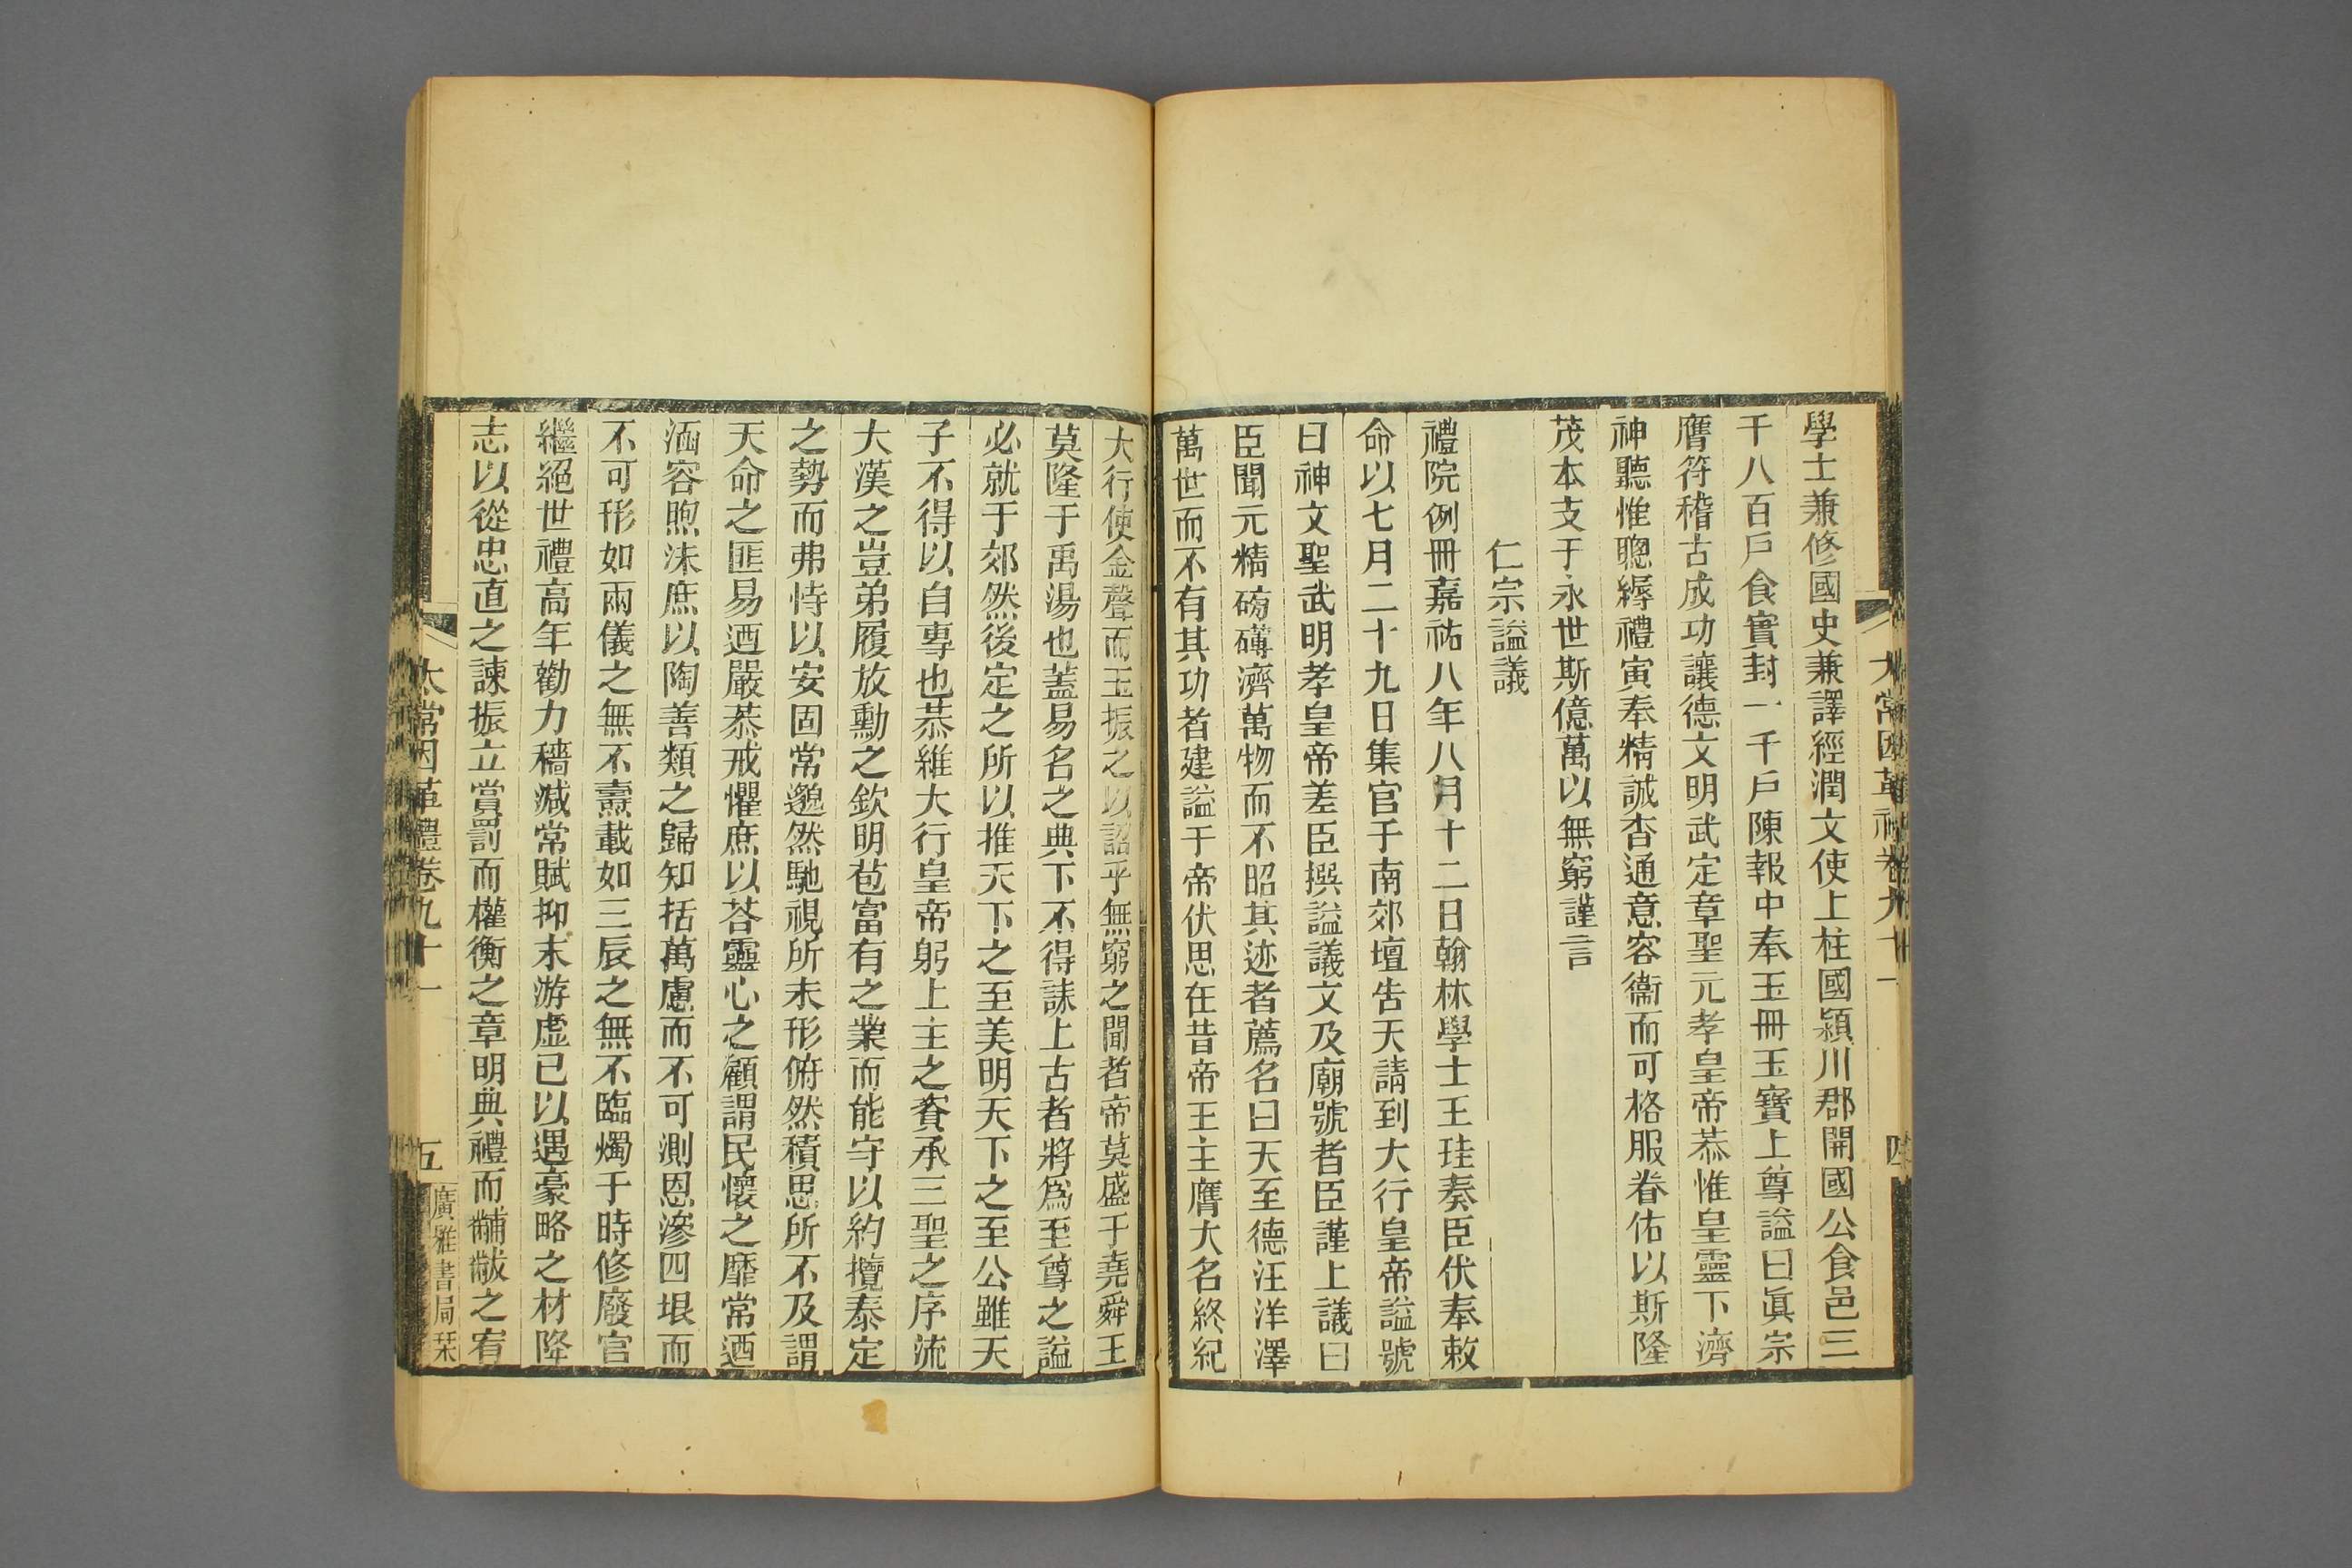 太常因革禮卷九十一
四
學士兼修國史兼譯經潤文使上柱國潁川郡開國公食邑三
千八百戶食實封一千戶陳報中奉玉冊玉寶上尊諡曰眞宗
膺符稽古成功讓德文明武定章聖元孝皇帝恭惟皇靈下濟
神聽惟聰縟禮寅奉精誠杳通意容衞而可格服眷佑以斯隆
茂本支于永世斯億萬以無窮謹言
仁宗諡議
禮院例冊嘉祐八年八月十二日翰林學士王珪奏臣伏奉敕
命以七月二十九日集官于南郊壇告天請到大行皇帝諡號
曰神文聖武明孝皇帝差臣撰諡議文及廟號者臣謹上議曰
臣聞元精磅礴濟萬物而不昭其迹者薦名曰天至德汪洋澤
萬世而不有其功者建諡于帝伏思在昔帝王主膺大名終紀
大行使金聲而玉振之以詔乎無窮之聞者帝莫盛于堯舜王
莫隆于禹湯也蓋易名之典下不得誄上古者將爲至尊之諡
必就于郊然後定之所以推天下之至美明天下之至公雖天
子不得以自專也恭維大行皇帝躬上主之賚承三聖之序流
大漢之豈弟履放勳之欽明苞富有之業而能守以約攬泰定
之勢而弗恃以安固常邈然馳視所未形俯然積思所不及謂
天命之匪易迺嚴恭戒懼庶以荅靈心之顧謂民懷之靡常迺
湎容煦沬庶以陶善類之歸知括萬慮而不可測恩滲四垠而
不可形如兩儀之無不燾載如三辰之無不臨燭于時修廢官
繼絕世禮高年勸力穡減常賦抑末游虛已以遇豪略之材降
志以從忠直之諫振立賞罰而權衡之章明典禮而黼黻之宥
太常因革禮卷九十一
五
廣雅書局栞